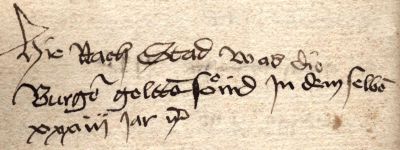 Hie Nach Stad was die
Burgʼ goltē sind In dem selbē
xxxiii Jar